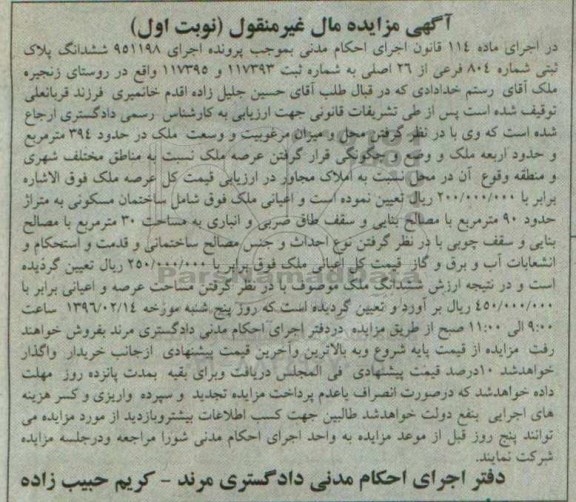 آگهی مزایده مال غیرمنقول (نوبت اول)
در اجرای ماده ۱۱۴ قانون اجرای احکام مدنی بموجب پرونده اجرای ۹۵۱۱۹۸ ششدانگ پلاک
ثبتی شماره ۸۰۴ فرعی از ۲۶ اصلی به شماره ثبت ۱۱۷۳۹۳ و ۱۱۷۳۹۵ واقع در روستای زنجیره
ملک آقای رستم خدادادی که در قبال طلب آقای حسین جلیل زاده اقدم خانمیری فرزند قربانعلی
توقیف شده است پس از طی تشریفات قانونی جهت ارزیابی به کارشناس رسمی دادگستری ارجاع
شده است که وی با در نظر گرفتن محل و میزان مرغوبیت و وسعت ملک در حدود ۳۹۴ مترمربع
و حدود اربعه ملک و وضع و چگونگی قرار گرفتن عرصه ملک نسبت به مناطق مختلف شهری
و منطقه وقوع آن در محل نسبت به املاک مجاور در ارزیابی قیمت کل عرصه ملک فوق الاشاره
برابر با ۲۰۰/۰۰۰/۰۰۰ ریال تعیین نموده است و اعیانی ملک فوق شامل ساختمان مسکونی به متراژ
حدود ۹۰ مترمربع با مصالح بنایی و سقف طاق ضربی و انباری به مساحت ۳۰ مترمربع با مصالح
بنایی و سقف چوبی با در نظر گرفتن نوع احداث و جنس مصالح ساختمانی و قدمت و استحکام و
انشعابات آب و برق و گاز قیمت کل اعیانی ملک فوق برابر با ۲۵۰/۰۰۰/۰۰۰ ریال تعیین گردیده
است و در نتیجه ارزش ششدانگ ملک موصوف با در نظر گرفتن مساحت عرصه و اعیانی برابر با
۴۵۰/۰۰۰/۰۰۰ ریال بر آورد و تعیین گردیده است که روز پنج شنبه مورخه ۱۳۹۶/۰۲/۱۴ ساعت
۹:۰۰ الی ۱۱:۰۰ صبح از طریق مزایده دردفتر اجرای احکام مدنی دادگستری مرند بفروش خواهند
رفت مزایده از قیمت پایه شروع وبه بالاترین وآخرین قیمت پیشنهادی ازجانب خریدار واگذار
خواهدشد ۱۰درصد قیمت پیشنهادی فی المجلس دریافت وبرای بقیه بمدت پانزده روز مهلت
داده خواهدشد که درصورت انصراف یاعدم پرداخت مزایده تجدید و سپرده واریزی و کسر هزینه
های اجرایی بنفع دولت خواهدشد طالبین جهت کسب اطلاعات بیشتروبازدید از مورد مزایده می
توانند پنج روز قبل از موعد مزایده به واحد اجرای احکام مدنی شورا مراجعه ودرجلسه مزایده
شرکت نمایند.
دفتر اجرای احکام مدنی دادگستری مرند - کریم حبیب زاده